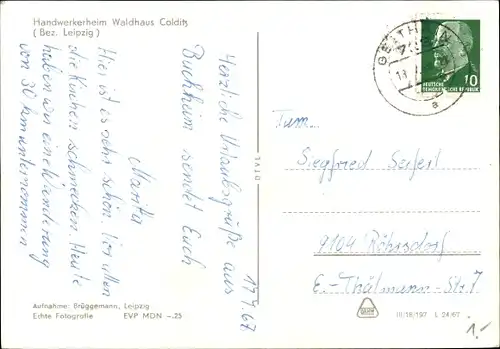 Handwerkerheim Waldhaus Colditz
( Bez. Leipzig )
17.7.67
Herzliche Urlaubsgrüße aus
Buchheim sendet Euch
Marita
Hier ist es sehr schön. Hier allen
die Kuchen schmecken. Heute
haben wir eine Wanderung
von 30 km unternommen
Aufnahme: Brüggemann, Leipzig
Echte Fotografie EVP MDN -.25
10
DEUTSCHE
DEMOKRATISCHE REPUBLIK
a
Fam.
Siegfried Seifert
9104 Röhrsdorf
E.-Thälmann-Str. 7
III/18/197 L 24/67
1.-